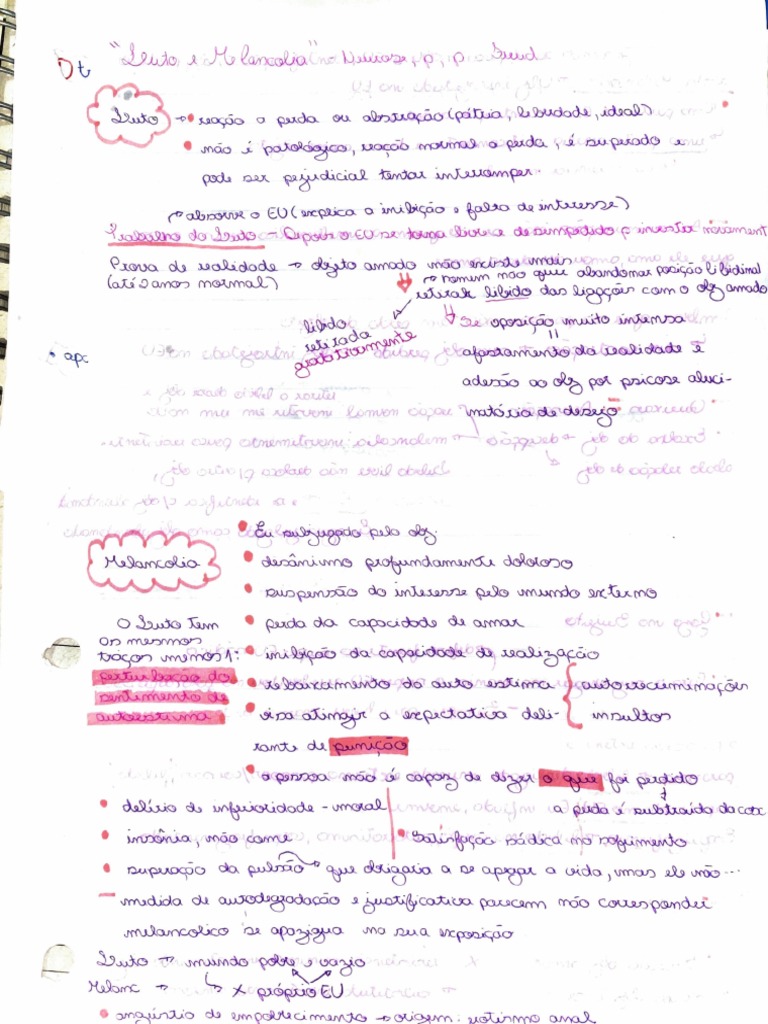 "Luto e Melancolia" no Neurose, p, p. Freud
Dt
Luto → • reação a perda ou abstração (pátria, liberdade, ideal)
• não é patológico, reação normal a perda, é superado e
pode ser pejudicial tentar interromper.
absorve o EU (explica a inibição e falta de interesse)
Trabalho do Luto - Depois o EU se torna livre e desimpedido p investir novament
Prova de realidade → objeto amado não existe mais
(até 2 anos normal)
→ homem não quer abandonar posição libidinal
retirar libido das ligações com o obj amado
libido
retirada
gradativamente
Se oposição muito intensa
=
apc
afastamento da realidade e
adesão ao obj por psicose aluci-
natória de desejo
• Eu subjugado pelo obj.
Melancolia
• desânimo profundamente doloroso
• suspensão do interesse pelo mundo externo
• perda da capacidade de amar
O Luto tem
os mesmos
traços menos 1:
perturbação do
sentimento de
autoestima
• inibição da capacidade de realização
• rebaixamento da auto estima { autorecriminações
• visa atingir a expectativa deli- insultos
rante de punição
• a pessoa não é capaz de dizer o que foi perdido
• delírio de inferioridade - moral
a perda é subtraída da
• insônia, não come
• Satisfação sádica no sofrimento
• superação da pulsão → que obrigaria a se apegar a vida, mas ele não...
— medida de autodegradação e justificativa parecem não corresponder
melancolico se apazigua na sua exposição
Luto → mundo pobre e vazio
Melanc → ↳ x próprio EU
• angústia de empobrecimento → origem: erotismo anal